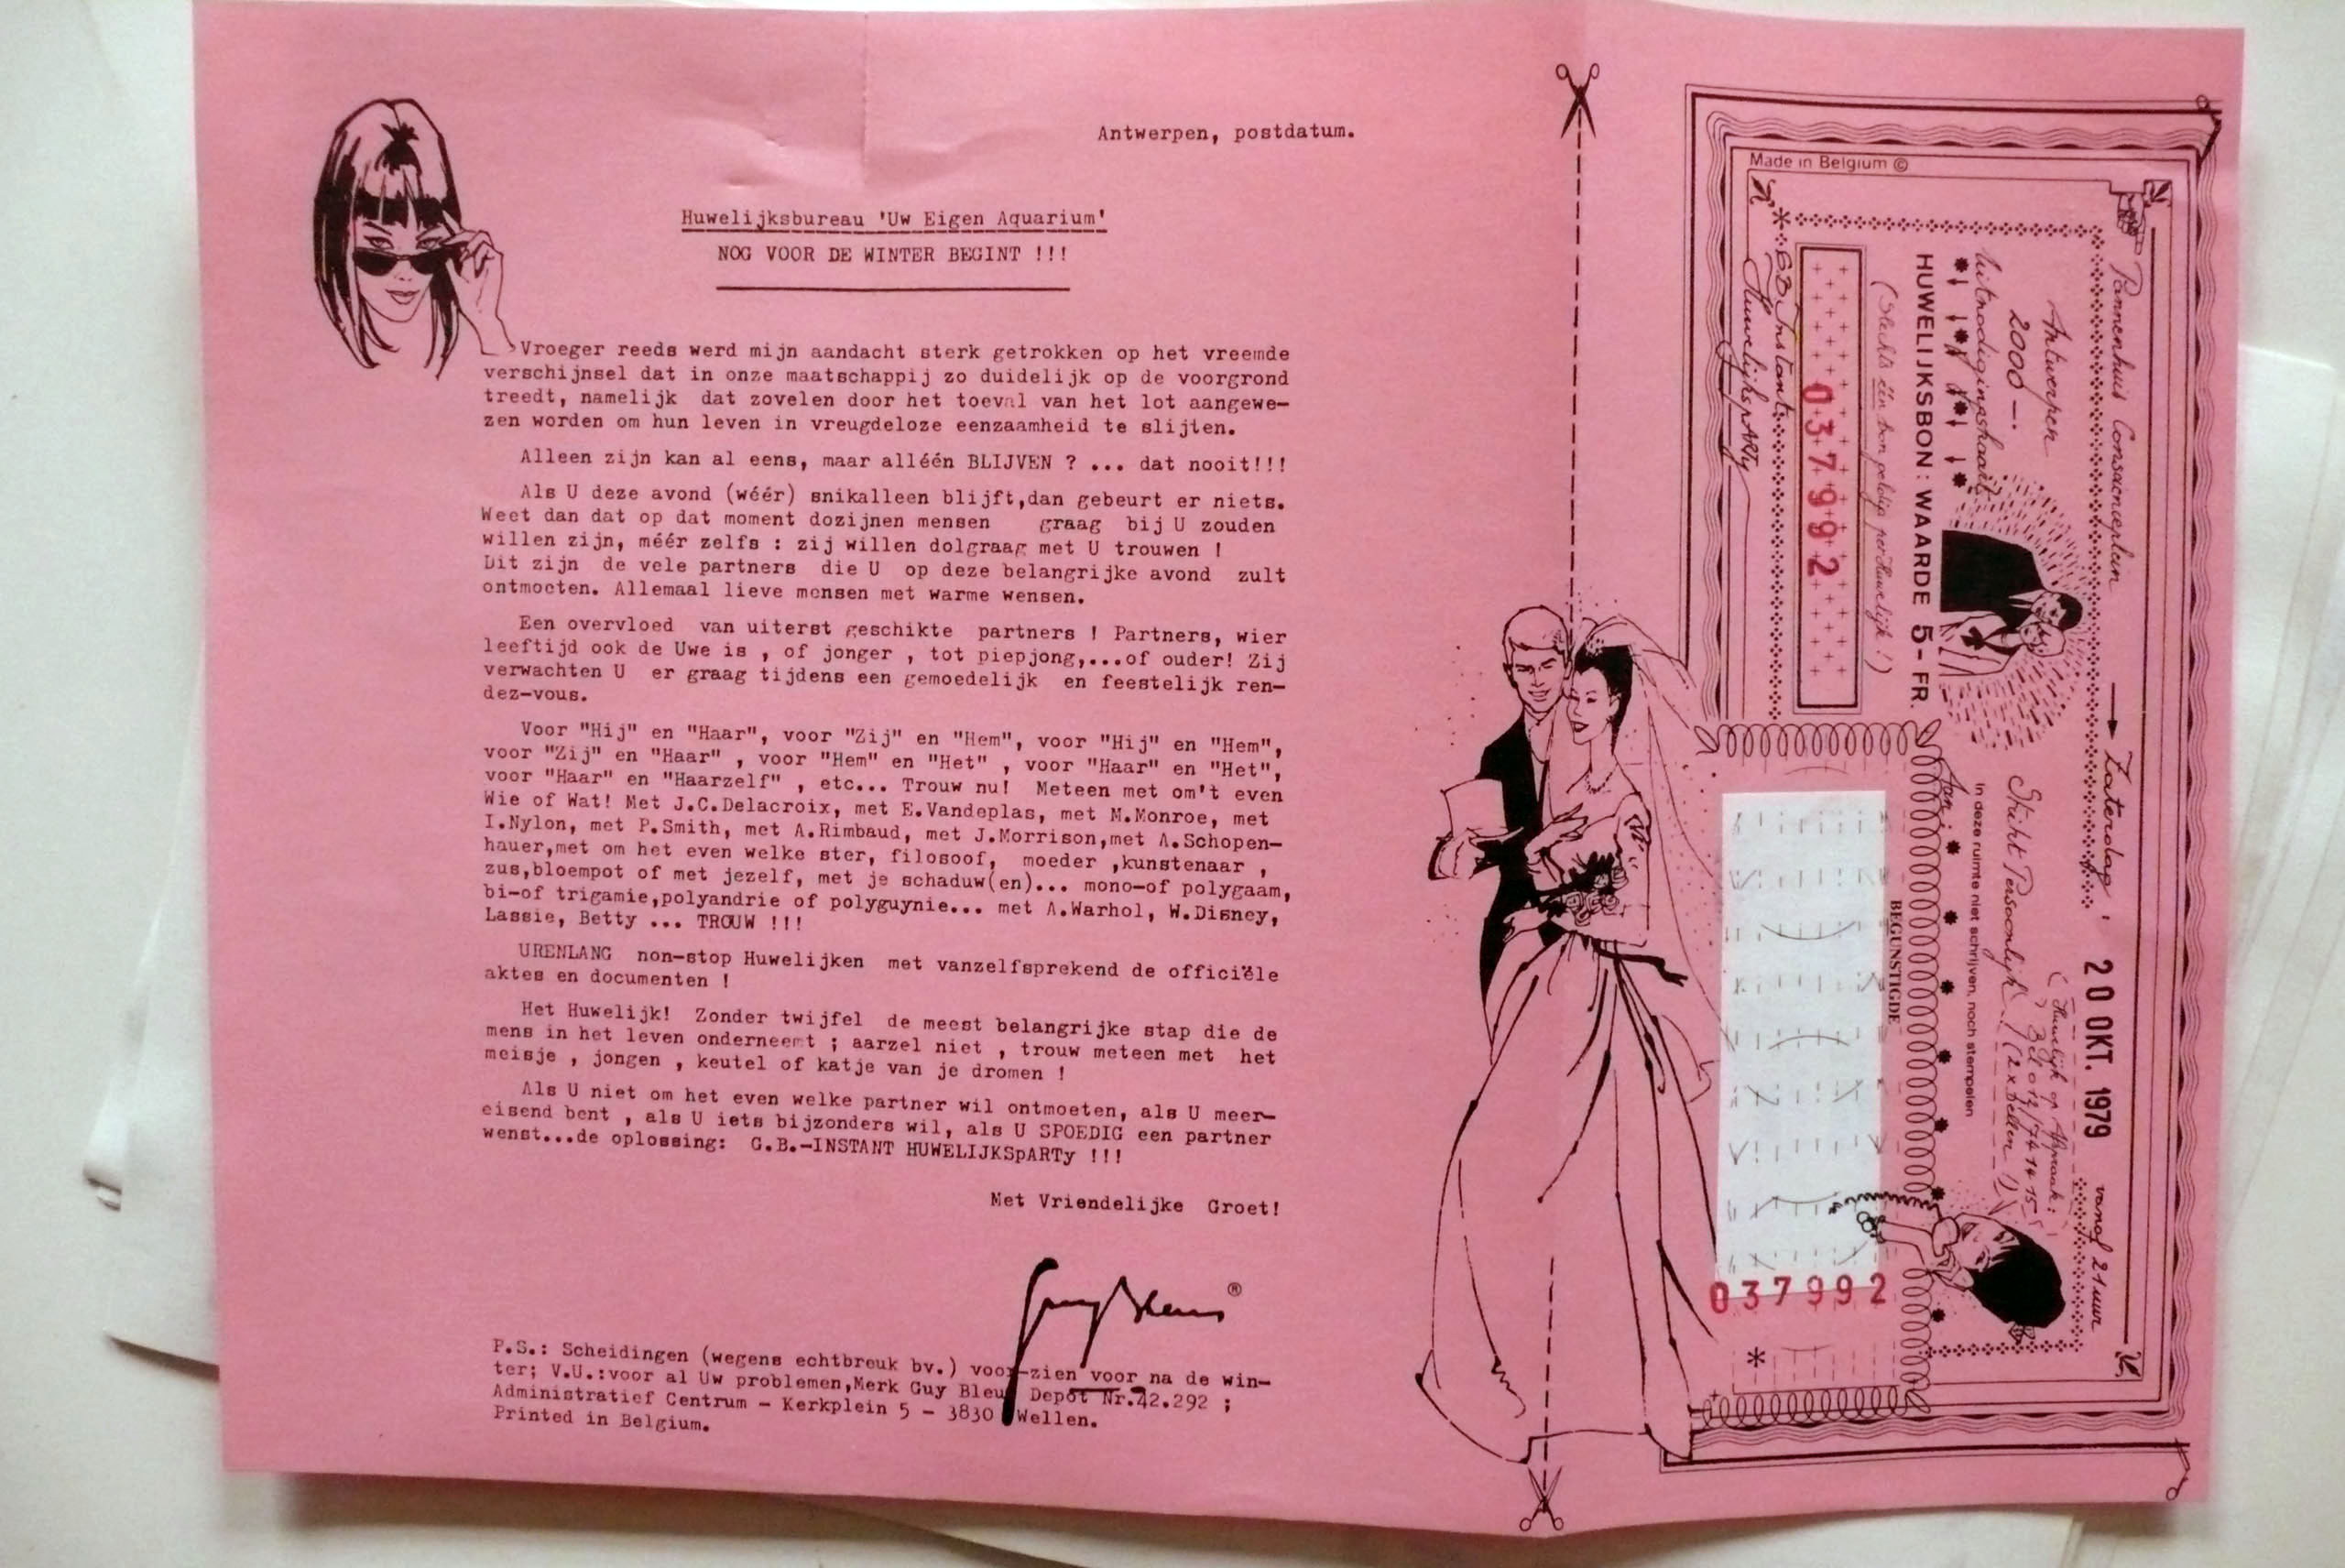 Antwerpen, postdatum.
Huwelijksbureau 'Uw Eigen Aquarium'
NOG VOOR DE WINTER BEGINT !!!
Vroeger reeds werd mijn aandacht sterk getrokken op het vreemde
verschijnsel dat in onze maatschappij zo duidelijk op de voorgrond
treedt, namelijk dat zovelen door het toeval van het lot aangewe-
zen worden om hun leven in vreugdeloze eenzaamheid te slijten.
Alleen zijn kan al eens, maar alléén BLIJVEN ? ... dat nooit!!!
Als U deze avond (wéér) snikalleen blijft,dan gebeurt er niets.
Weet dan dat op dat moment dozijnen mensen graag bij U zouden
willen zijn, méér zelfs : zij willen dolgraag met U trouwen !
Dit zijn de vele partners die U op deze belangrijke avond zult
ontmoeten. Allemaal lieve mensen met warme wensen.
Een overvloed van uiterst geschikte partners ! Partners, wier
leeftijd ook de Uwe is , of jonger , tot piepjong,...of ouder! Zij
verwachten U er graag tijdens een gemoedelijk en feestelijk ren-
dez-vous.
Voor "Hij" en "Haar", voor "Zij" en "Hem", voor "Hij" en "Hem",
voor "Zij" en "Haar" , voor "Hem" en "Het" , voor "Haar" en "Het",
voor "Haar" en "Haarzelf" , etc... Trouw nu! Meteen met om't even
Wie of Wat! Met J.C.Delacroix, met E.Vandeplas, met M.Monroe, met
I.Nylon, met P.Smith, met A.Rimbaud, met J.Morrison,met A.Schopen-
hauer,met om het even welke ster, filosoof, moeder ,kunstenaar ,
zus,bloempot of met jezelf, met je schaduw(en)... mono-of polygaam,
bi-of trigamie,polyandrie of polyguynie... met A.Warhol, W.Disney,
Lassie, Betty ... TROUW !!!
URENLANG non-stop Huwelijken met vanzelfsprekend de officiële
aktes en documenten !
Het Huwelijk! Zonder twijfel de meest belangrijke stap die de
mens in het leven onderneemt ; aarzel niet , trouw meteen met het
meisje , jongen , keutel of katje van je dromen !
Als U niet om het even welke partner wil ontmoeten, als U meer-
eisend bent , als U iets bijzonders wil, als U SPOEDIG een partner
wenst...de oplossing: G.B.-INSTANT HUWELIJKSpARTy !!!
Met Vriendelijke Groet!
Guy Bleus ®
P.S.: Scheidingen (wegens echtbreuk bv.) voor-zien voor na de win-
ter; V.U.:voor al Uw problemen,Merk Guy Bleus Depot Nr.42.292 ;
Administratief Centrum - Kerkplein 5 - 3830 Wellen.
Printed in Belgium.
Made in Belgium ©
Pannenhuis Conscienceplein → Zaterdag 20 OKT. 1979 vanaf 21 uur
Antwerpen
2000 —
(Huwelijk op Afspraak:
Bel 012/74 14 15
(2 x bellen !)
uitnodigingskaart
Strikt Persoonlijk !
HUWELIJKSBON : WAARDE 5- FR.
(Slechts één bon geldig per Huwelijk !)
037992
GB Instant
HuwelijkspARTy
Aan :
In deze ruimte niet schrijven, noch stempelen
BEGUNSTIGDE
037992